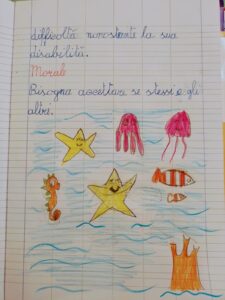 difficoltà nonostante la sua
disabilità.
Morale
Bisogna accettare se stessi e gli
altri.